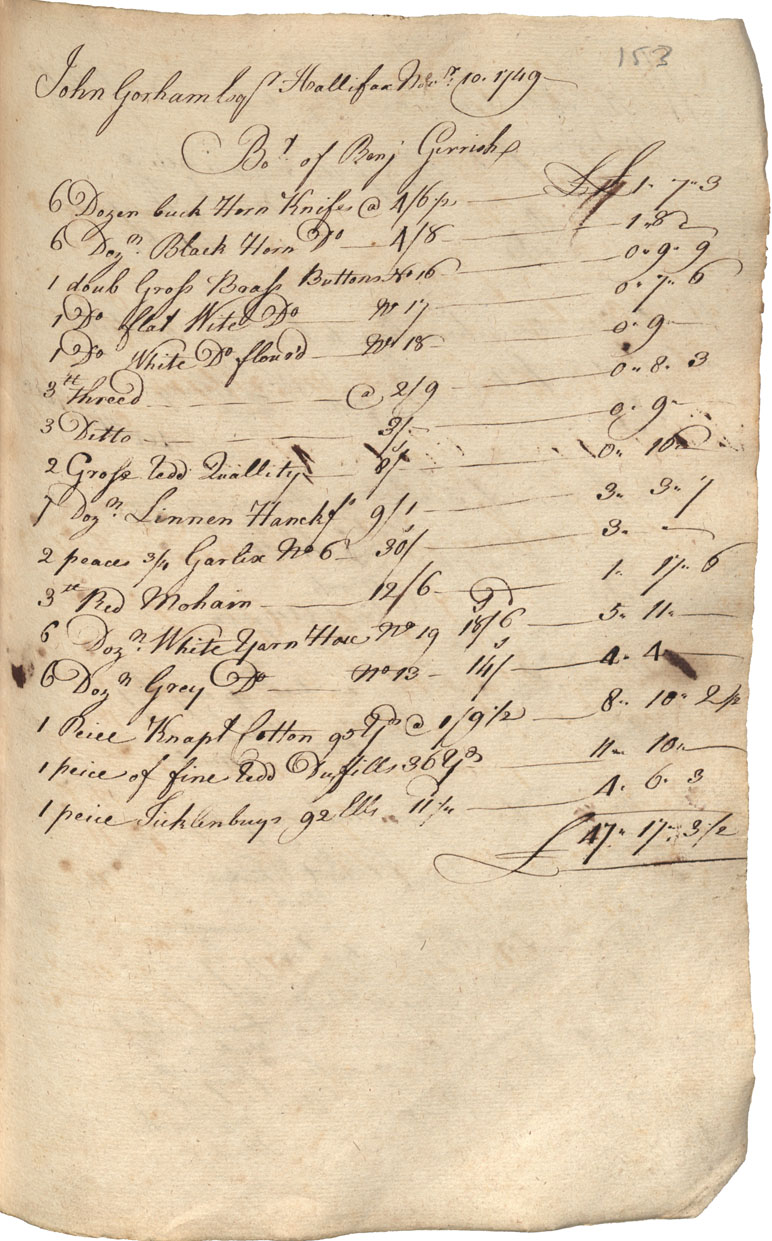 153
John Gorham Esqr Hallifax Novr. 10. 1749
Bot of Benj Gerrish
6 Dozen buck Horn Knifes @ 4/6 p £ 1 " 7 " 3
6 Dozn. Black Horn Do 4/8 1 " 8
1 doub Gross Brass Buttons No 16 0 " 9 " 9
1 Do flat Wite Do No 17 0 " 7 " 6
1 Do White Do flour'd No 18 0 " 9 "
3 tt threed @ 2/9 0 " 8 " 3
3 Ditto 3/ 0 " 9 "
2 Gross Redd Quallity 8/ 0 " 16
7 Dozn. Linnen Hanckfs 9/1 3 " 3 " 7
2 peaces 3/4 Garlix No 6 30/ 3 "
3 tt Red Mohair 12/6 1 " 17 " 6
6 Dozn. White Yarn Hose No 19 18/6 5 " 11 "
6 Dozn Grey Do No 13 14/ 4 " 4
1 Peice Knapt Cotton 95 Yds @ 1/9 1/2 8 " 10 " 2 1/2
1 peice of fine Redd Duffills 36 Yds 11 " 10 "
1 peice Ticklenburgs 92 Ells 11 1/4 4 " 6 " 3
£ 47 " 17 " 3 1/2